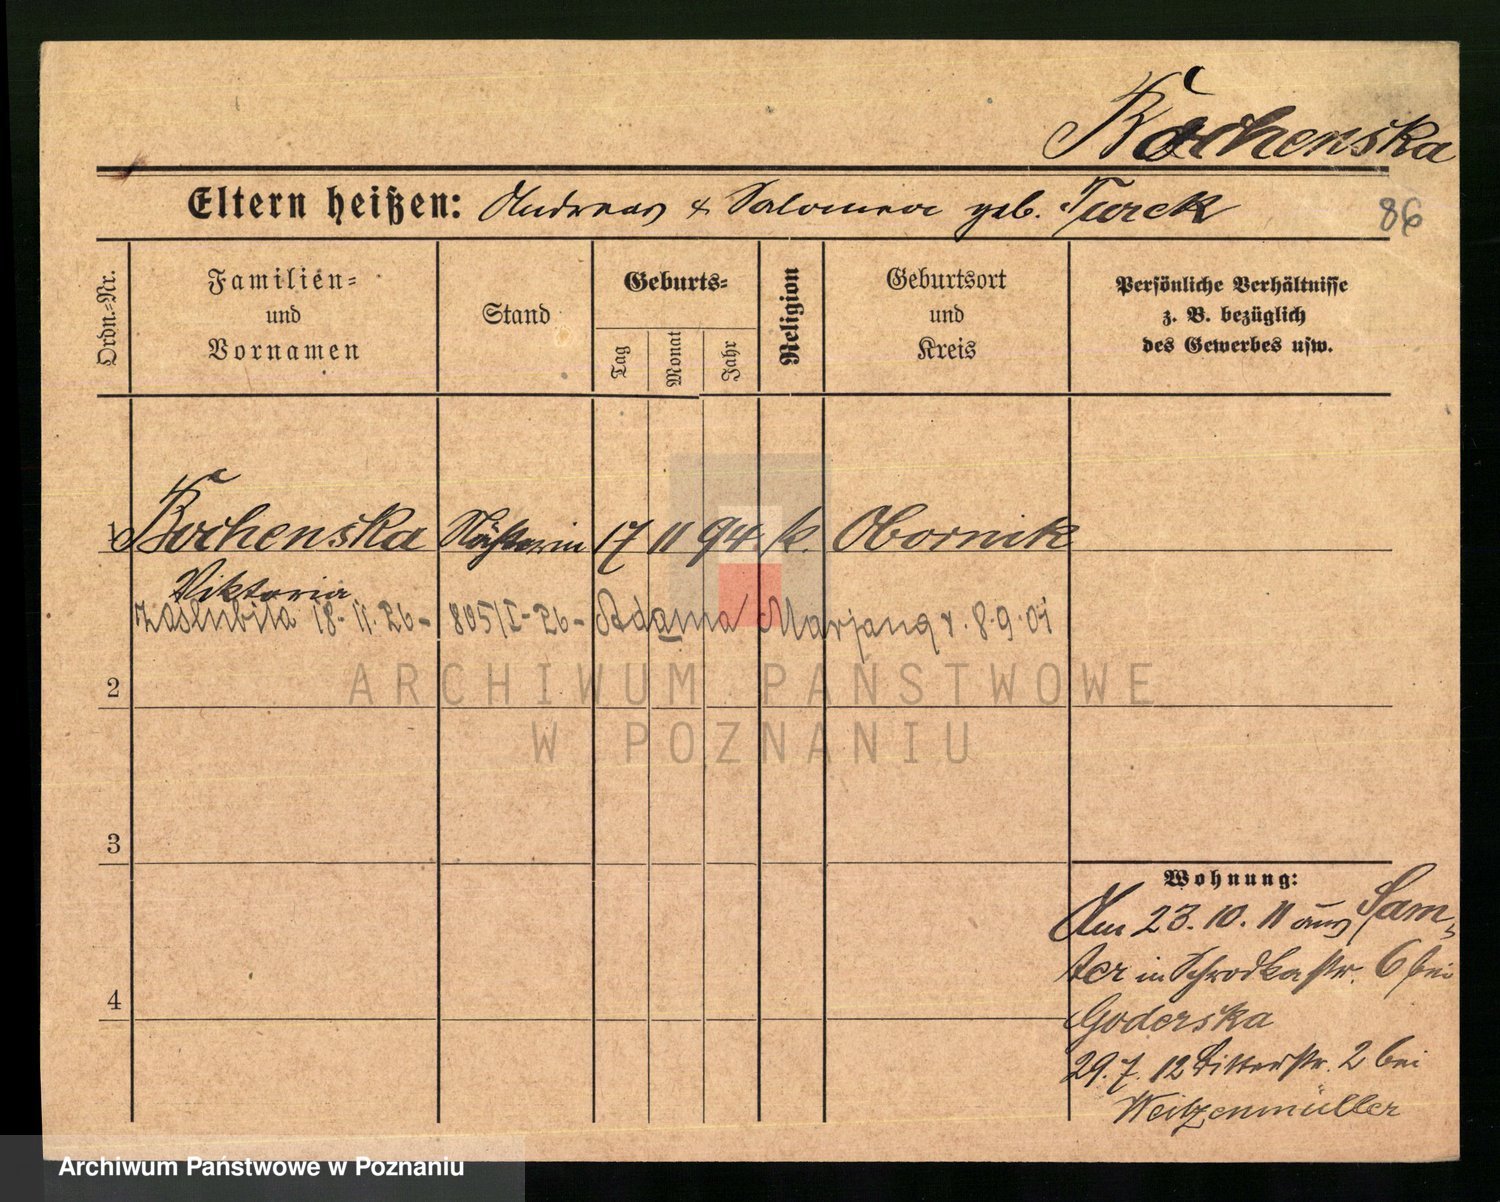 Kochenska
Eltern heißen: Andreas & Salomea geb. Turek
86
Ordn.-Nr.
Familien-
und
Vornamen
Stand
Geburts-
Tag
Monat
Jahr
Religion
Geburtsort
und
Kreis
Persönliche Verhältnisse
z. B. bezüglich
des Gewerbes usw.
1 Kochenska 17 11 94 k. Obornik
Viktoria
zaślubiła 18-11.26- 805/I-26- Adama Marjana r. 8.9.01
2
3
4
Wohnung:
Am 23.10.11 aus Sam-
ter in Schrodkastr. 6 bei
Goderska
29.7.12 Ritterstr. 2 bei
Weitzenmüller
ARCHIWUM PAŃSTWOWE
W POZNANIU
Archiwum Państwowe w Poznaniu